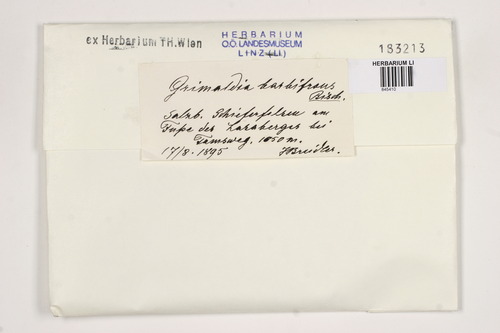 ex Herbarium TH.Wien
HERBARIUM
O.Ö. LANDESMUSEUM
LINZ (LI)
183213
HERBARIUM LI
645410
Grimaldia barbifrons
Bisch.
Salzb. Schieferfelsen am
Fuße des Lasaberges bei
Tamsweg. 1050 m.
17/8. 1895 JBreidler.